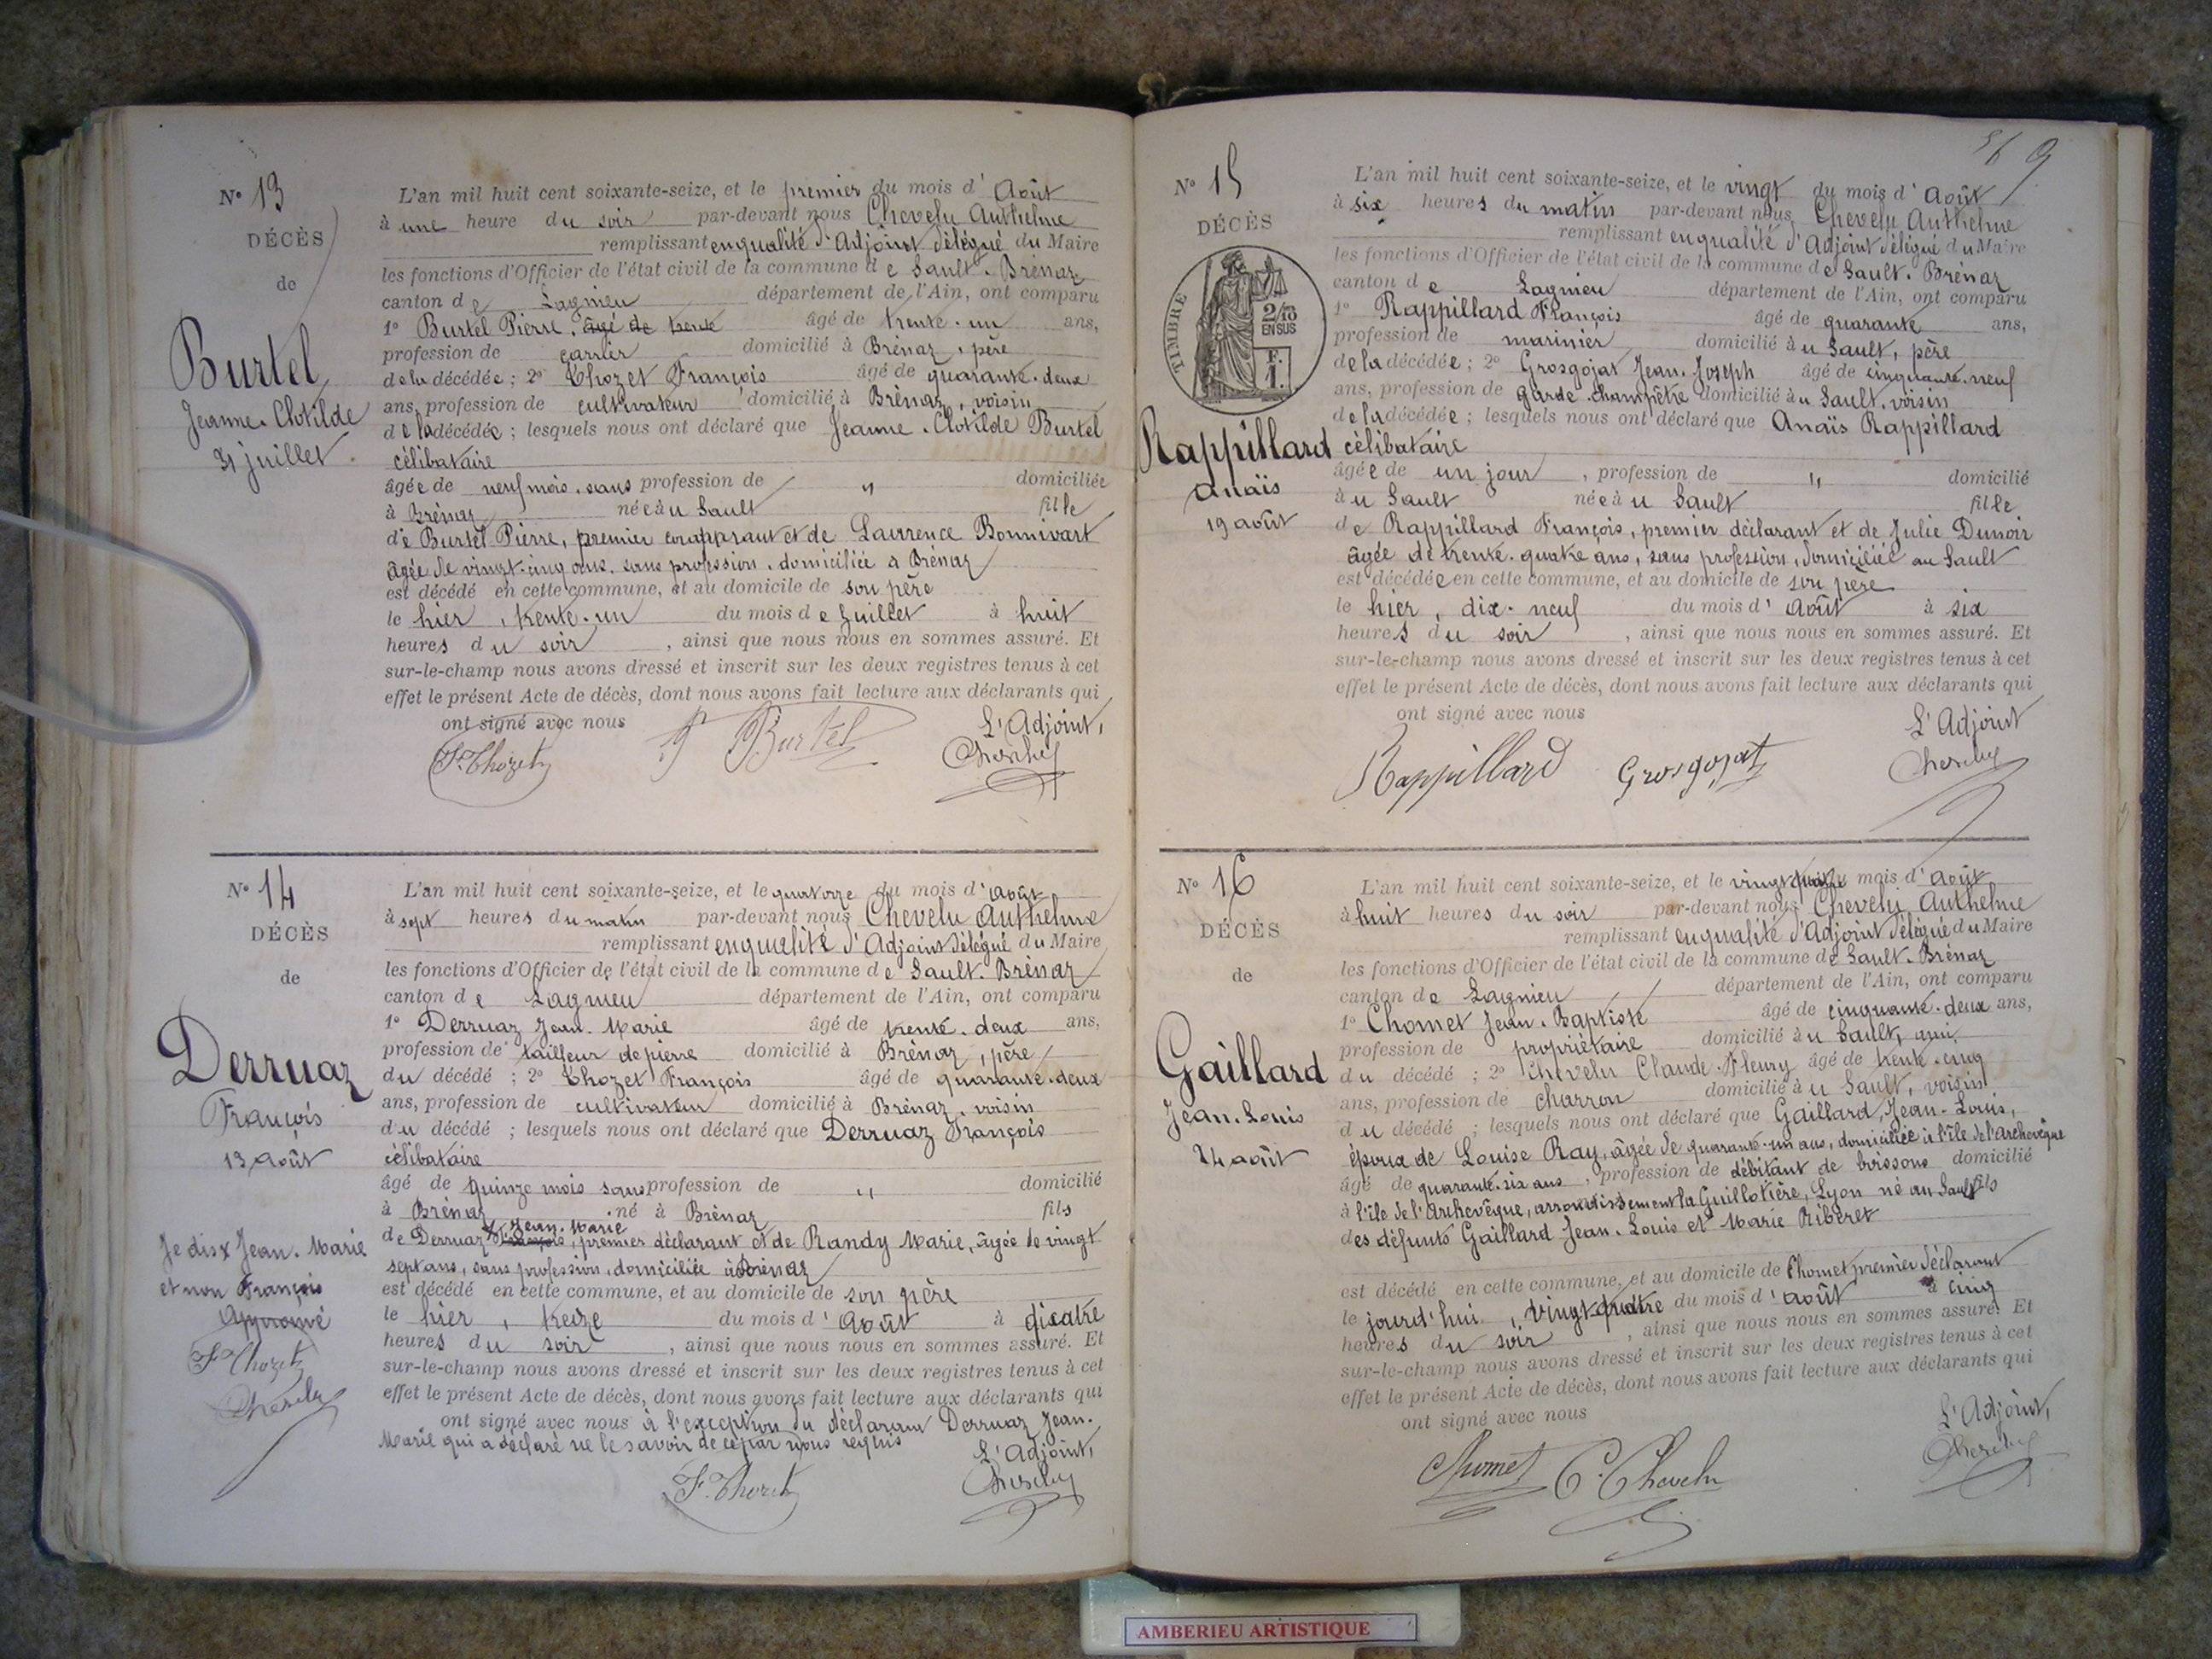 N° 13
DÉCÈS
de
Burtel
Jeanne. Clotilde
31 juillet
L'an mil huit cent soixante-seize, et le premier du mois d'Août
à une heure du soir par-devant nous Chevelu Anthelme
remplissant en qualité d'Adjoint délégué du Maire
les fonctions d'Officier de l'état civil de la commune de Sault-Brénaz
canton de Lagnieu département de l'Ain, ont comparu
1° Burtel Pierre, âgé de trente âgé de trente-un ans,
profession de carrier domicilié à Brénaz, père
de la décédée ; 2° Thozet François âgé de quarante-deux
ans, profession de cultivateur domicilié à Brénaz, voisin
de la décédée ; lesquels nous ont déclaré que Jeanne-Clotilde Burtel
célibataire
âgée de neuf mois, sans profession de " domiciliée
à Brénaz née au Sault fille
de Burtel Pierre, premier comparant et de Laurence Bonnivart
âgée de vingt-cinq ans, sans profession, domiciliée à Brénaz
est décédé en cette commune, et au domicile de son père
le hier, trente-un du mois de Juillet à huit
heures du soir, ainsi que nous nous en sommes assuré. Et
sur-le-champ nous avons dressé et inscrit sur les deux registres tenus à cet
effet le présent Acte de décès, dont nous avons fait lecture aux déclarants qui
ont signé avec nous L'Adjoint,
F. Thozet P Burtel Chevelu
N° 14
DÉCÈS
de
Derruaz
François
13 Août
Je dis x Jean-Marie
et non François
Approuvé
F. Thozet
Chevelu
L'an mil huit cent soixante-seize, et le quatorze du mois d'Août
à sept heures du matin par-devant nous Chevelu Anthelme
remplissant en qualité d'Adjoint délégué du Maire
les fonctions d'Officier de l'état civil de la commune de Sault-Brénaz
canton de Lagnieu département de l'Ain, ont comparu
1° Derruaz Jean-Marie âgé de trente-deux ans,
profession de tailleur de pierre domicilié à Brénaz, père
du décédé ; 2° Thozet François âgé de quarante-deux
ans, profession de cultivateur domicilié à Brénaz, voisin
du décédé ; lesquels nous ont déclaré que Derruaz François
célibataire
âgé de quinze mois sans profession de " domicilié
à Brénaz né à Brénaz fils
x Jean-Marie
de Derruaz François, premier déclarant et de Randy Marie, âgée de vingt
sept ans, sans profession, domiciliée à Brénaz
est décédé en cette commune, et au domicile de son père
le hier, treize du mois d'Août à
heures du soir, ainsi que nous nous en sommes assuré. Et
sur-le-champ nous avons dressé et inscrit sur les deux registres tenus à cet
effet le présent Acte de décès, dont nous avons fait lecture aux déclarants qui
ont signé avec nous à l'exception du déclarant Derruaz Jean-
Marie qui a déclaré ne le savoir de ce par nous requis
L'Adjoint,
F. Thozet Chevelu
569
N° 15
DÉCÈS
TIMBRE
2/10
EN SUS
F.
1.
Rappillard
Anaïs
19 août
L'an mil huit cent soixante-seize, et le vingt du mois d'Août
à six heures du matin par-devant nous Chevelu Anthelme
remplissant en qualité d'Adjoint délégué du Maire
les fonctions d'Officier de l'état civil de la commune de Sault-Brénaz
canton de Lagnieu département de l'Ain, ont comparu
1° Rappillard François âgé de quarante ans,
profession de marinier domicilié au Sault, père
de la décédée ; 2° Grosgojat Jean-Joseph âgé de cinquante-neuf
ans, profession de garde-champêtre domicilié au Sault, voisin
de la décédée ; lesquels nous ont déclaré que Anaïs Rappillard
célibataire
âgée de un jour, profession de " domicilié
au Sault née au Sault fille
de Rappillard François, premier déclarant et de Julie Dunoir
âgée de trente-quatre ans, sans profession, domiciliée au Sault
est décédée en cette commune, et au domicile de son père
le hier, dix-neuf du mois d'Août à six
heures du soir, ainsi que nous nous en sommes assuré. Et
sur-le-champ nous avons dressé et inscrit sur les deux registres tenus à cet
effet le présent Acte de décès, dont nous avons fait lecture aux déclarants qui
ont signé avec nous L'Adjoint
Rappillard Grosgojat Chevelu
N° 16
DÉCÈS
de
Gaillard
Jean-Louis
24 août
L'an mil huit cent soixante-seize, et le vingt quatre du mois d'Août
à huit heures du soir par-devant nous Chevelu Anthelme
remplissant en qualité d'Adjoint délégué du Maire
les fonctions d'Officier de l'état civil de la commune de Sault-Brénaz
canton de Lagnieu département de l'Ain, ont comparu
1° Chomet Jean-Baptiste âgé de cinquante-deux ans,
profession de propriétaire domicilié au Sault, ami
du décédé ; 2° Chevelu Claude-Fleury âgé de trente-cinq
ans, profession de charron domicilié au Sault, voisin
du décédé ; lesquels nous ont déclaré que Gaillard, Jean-Louis,
époux de Louise Ray, âgée de quarante-un ans, domiciliée à l'île de l'Archevêque
âgé de quarante-six ans, profession de débitant de boissons domicilié
à l'île de l'Archevêque, arrondissement la Guillotière, Lyon né au Sault fils
des défunts Gaillard Jean-Louis et Marie Riberet
est décédé en cette commune, et au domicile de Chomet premier déclarant
le jourd'hui, vingt-quatre du mois d'Août à cinq
heures du soir, ainsi que nous nous en sommes assuré. Et
sur-le-champ nous avons dressé et inscrit sur les deux registres tenus à cet
effet le présent Acte de décès, dont nous avons fait lecture aux déclarants qui
ont signé avec nous L'Adjoint,
Chomet C. Chevelu Chevelu
AMBERIEU ARTISTIQUE